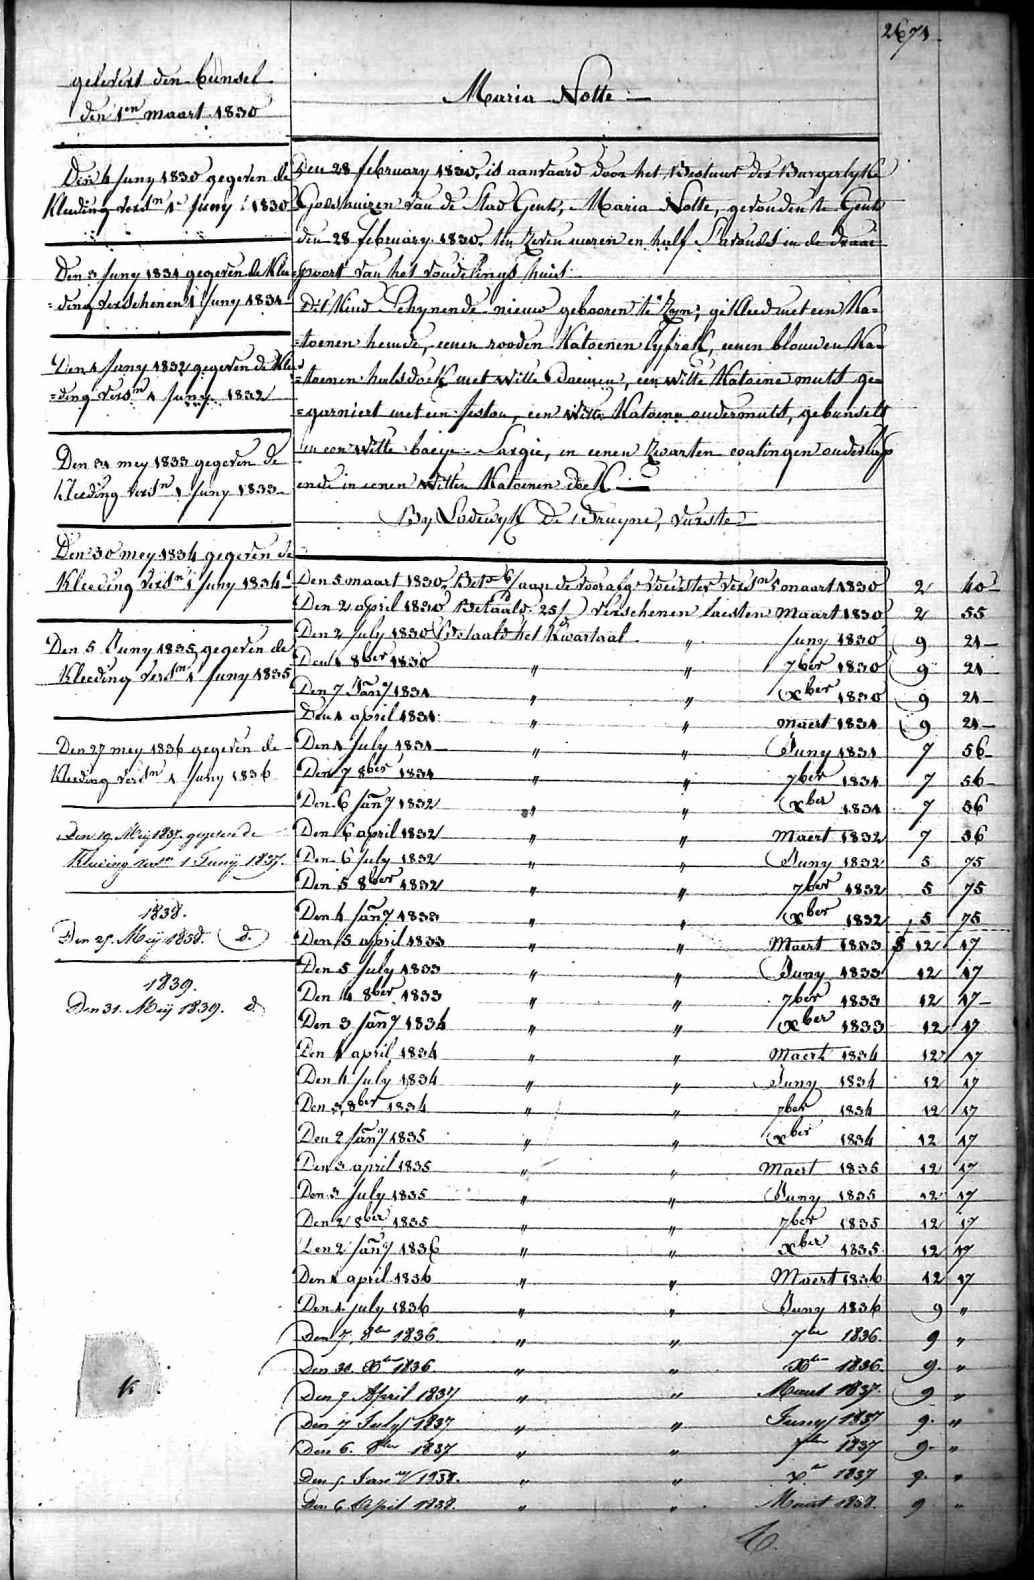 2671
gelevert den bunsel
den 1en maart 1830
Maria Nolle
Den 4 Juny 1830 gegeven de
Kleeding versn 1 Juny 1830
Den 3 Juny 1831 gegeven de Klee
=ding verschenen 1 Juny 1831
Den 1 Juny 1832 gegeven de Klee
=ding versn 1 Juny 1832
Den 31 mey 1833 gegeven de
Kleeding versn 1 Juny 1833
Den 30 mey 1834 gegeven de
Kleeding versn 1 Juny 1834
Den 5 Juny 1835 gegeven de
Kleeding versn 1 Juny 1835
Den 27 mey 1836 gegeven de
Kleeding versn 1 Juny 1836
Den 19 Meij 1837 gegeven de
Kleeding versn 1 Junij 1837.
1838.
Den 25. Meij 1838. d.
1839.
Den 31. Meij 1839. d.
Den 28 february 1830, is aanvaard door het Bestuur der Burgerlyke
Godshuizen van de Stad Gent, Maria Nolle, gevonden te Gent
den 28 february 1830. ten zeven uuren en half S'avonds in de draai
=poort van het vondelings huis.
Dit Kind Schynende nieuw gebooren te zyn; gekleed met een Ka=
=toenen hemde, eenen rooden Katoenen lyfrok, eenen blouwen Ka=
=toenen halsdoek met witte bloemen, een witte Katoene muts ge=
=garniert met een feston, een witte Katoene ondermuts, gebunselt
in een witte baeye Sargie, en eenen zwarten
ende in eenen witten Katoenen doek
By Lodewyk De Bruyne, Vurste
Den 5 maart 1830. Bet. aan de voorafg. Voedster versn 5 maart 1830 2 40
Den 2 april 1830 Betaald 25 verschenen laesten Maart 1830 2 55
Den 2 July 1830 Betaald het Kwartaal " Juny 1830 9 21
Den 1 8ber 1830 " " 7ber 1830 9 21
Den 7 Jany 1831 " " Xber 1830 9 21
Den 1 april 1831 " " maert 1831 9 21
Den 1 July 1831 " " Juny 1831 7 56
Den 7 8ber 1831 " " 7ber 1831 7 56
Den 6 Jany 1832 " " Xber 1831 7 56
Den 6 april 1832 " " Maert 1832 7 56
Den 6 July 1832 " " Juny 1832 5 75
Den 5 8ber 1832 " " 7ber 1832 5 75
Den 4 Jany 1833 " " Xber 1832 5 75
Den 5 april 1833 " " Maert 1833 12 17
Den 5 July 1833 " " Juny 1833 12 17
Den 4 8ber 1833 " " 7ber 1833 12 17
Den 3 Jany 1834 " " Xber 1833 12 17
Den 4 april 1834 " " Maert 1834 12 17
Den 4 July 1834 " " Juny 1834 12 17
Den 3 8ber 1834 " " 7ber 1834 12 17
Den 2 Jany 1835 " " Xber 1834 12 17
Den 3 april 1835 " " Maert 1835 12 17
Den 3 July 1835 " " Juny 1835 12 17
Den 2 8ber 1835 " " 7ber 1835 12 17
Den 2 Jany 1836 " " Xber 1835 12 17
Den 1 april 1836 " " Maert 1836 12 17
Den 1 July 1836 " " Juny 1836 9 "
Den 7. 8bre 1836. " " 7bre 1836. 9 "
Den 30. Xbre 1836 " " Xbre 1836. 9. "
Den 7 April 1837 " " Maart 1837. 9 "
Den 7 July 1837 " " Juny 1837 9. "
Den 6. 8bre 1837 " " 7bre 1837 9. "
Den 5 Jany 1838. " " Xe 1837 9. "
Den 6 April 1838. " " Maart 1838. 9 "
K